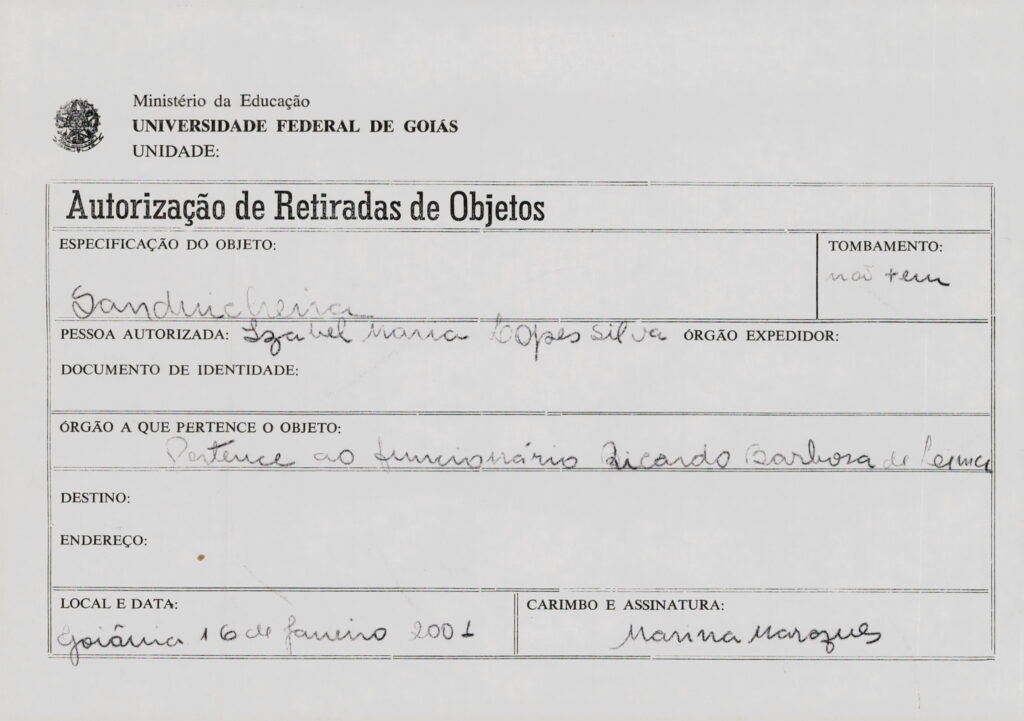 Ministério da Educação
UNIVERSIDADE FEDERAL DE GOIÁS
UNIDADE:
Autorização de Retiradas de Objetos
ESPECIFICAÇÃO DO OBJETO:
Sanduicheira
TOMBAMENTO:
não tem
PESSOA AUTORIZADA: Izabel Maria Lopes Silva ÓRGÃO EXPEDIDOR:
DOCUMENTO DE IDENTIDADE:
ÓRGÃO A QUE PERTENCE O OBJETO:
Pertence ao funcionário Ricardo Barbosa de
DESTINO:
ENDEREÇO:
LOCAL E DATA:
Goiânia 16 de Janeiro 2001
CARIMBO E ASSINATURA:
Marina Marques